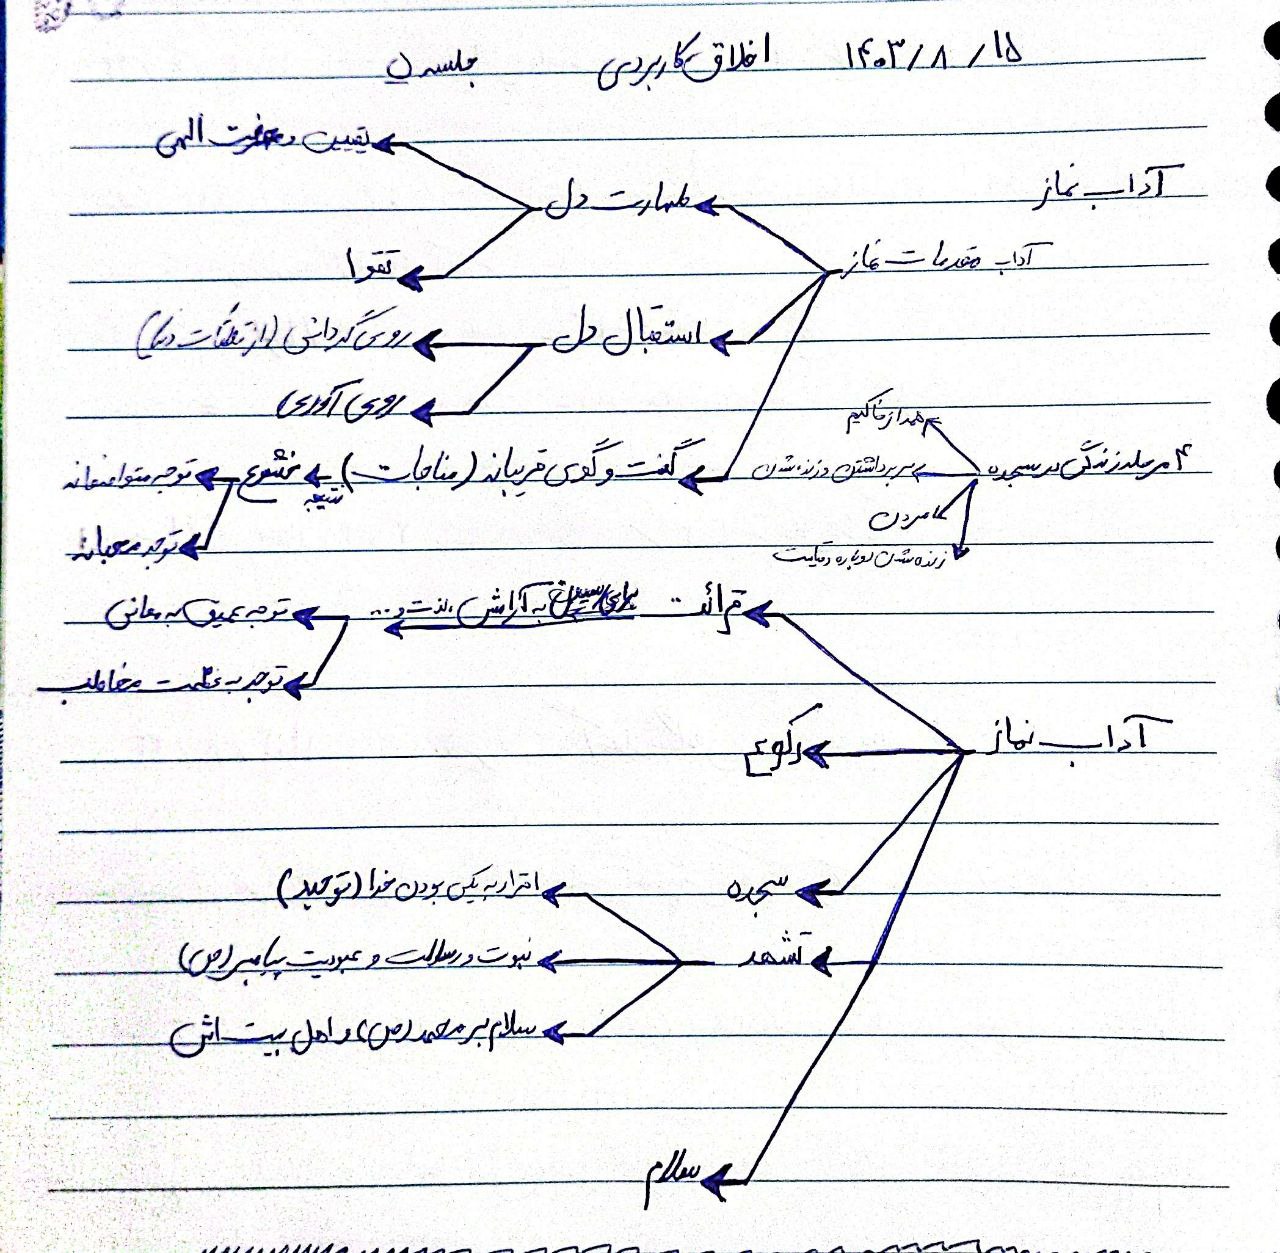 ۱۴۰۳/۸/۱۵ اخلاق کاربردی جلسه ۵
یقین و معرفت الهی
آداب نماز
طهارت دل
آداب مقدمات نماز
تقوا
استقبال دل
روی گردانی (از تعلقات دنیا)
روی آوری
همه از خاکیم
۴ مرحله زندگی در سجده
سر برداشتن و زنده شدن
گفت و گوی قریبانه (مناجات) نتیجه خشوع
توجه متواضعانه
مردن
توجه محبانه
زنده شدن دوباره در قیامت
قرائت برای رسیدن به آرامش، لذت و...
توجه عمیق به معانی
توجه به عظمت مخاطب
آداب نماز
رکوع
سجده
اقرار به یکی بودن خدا (توحید)
تشهد
نبوت و رسالت و عبودیت پیامبر (ص)
سلام بر محمد (ص) و اهل بیت اش
سلام